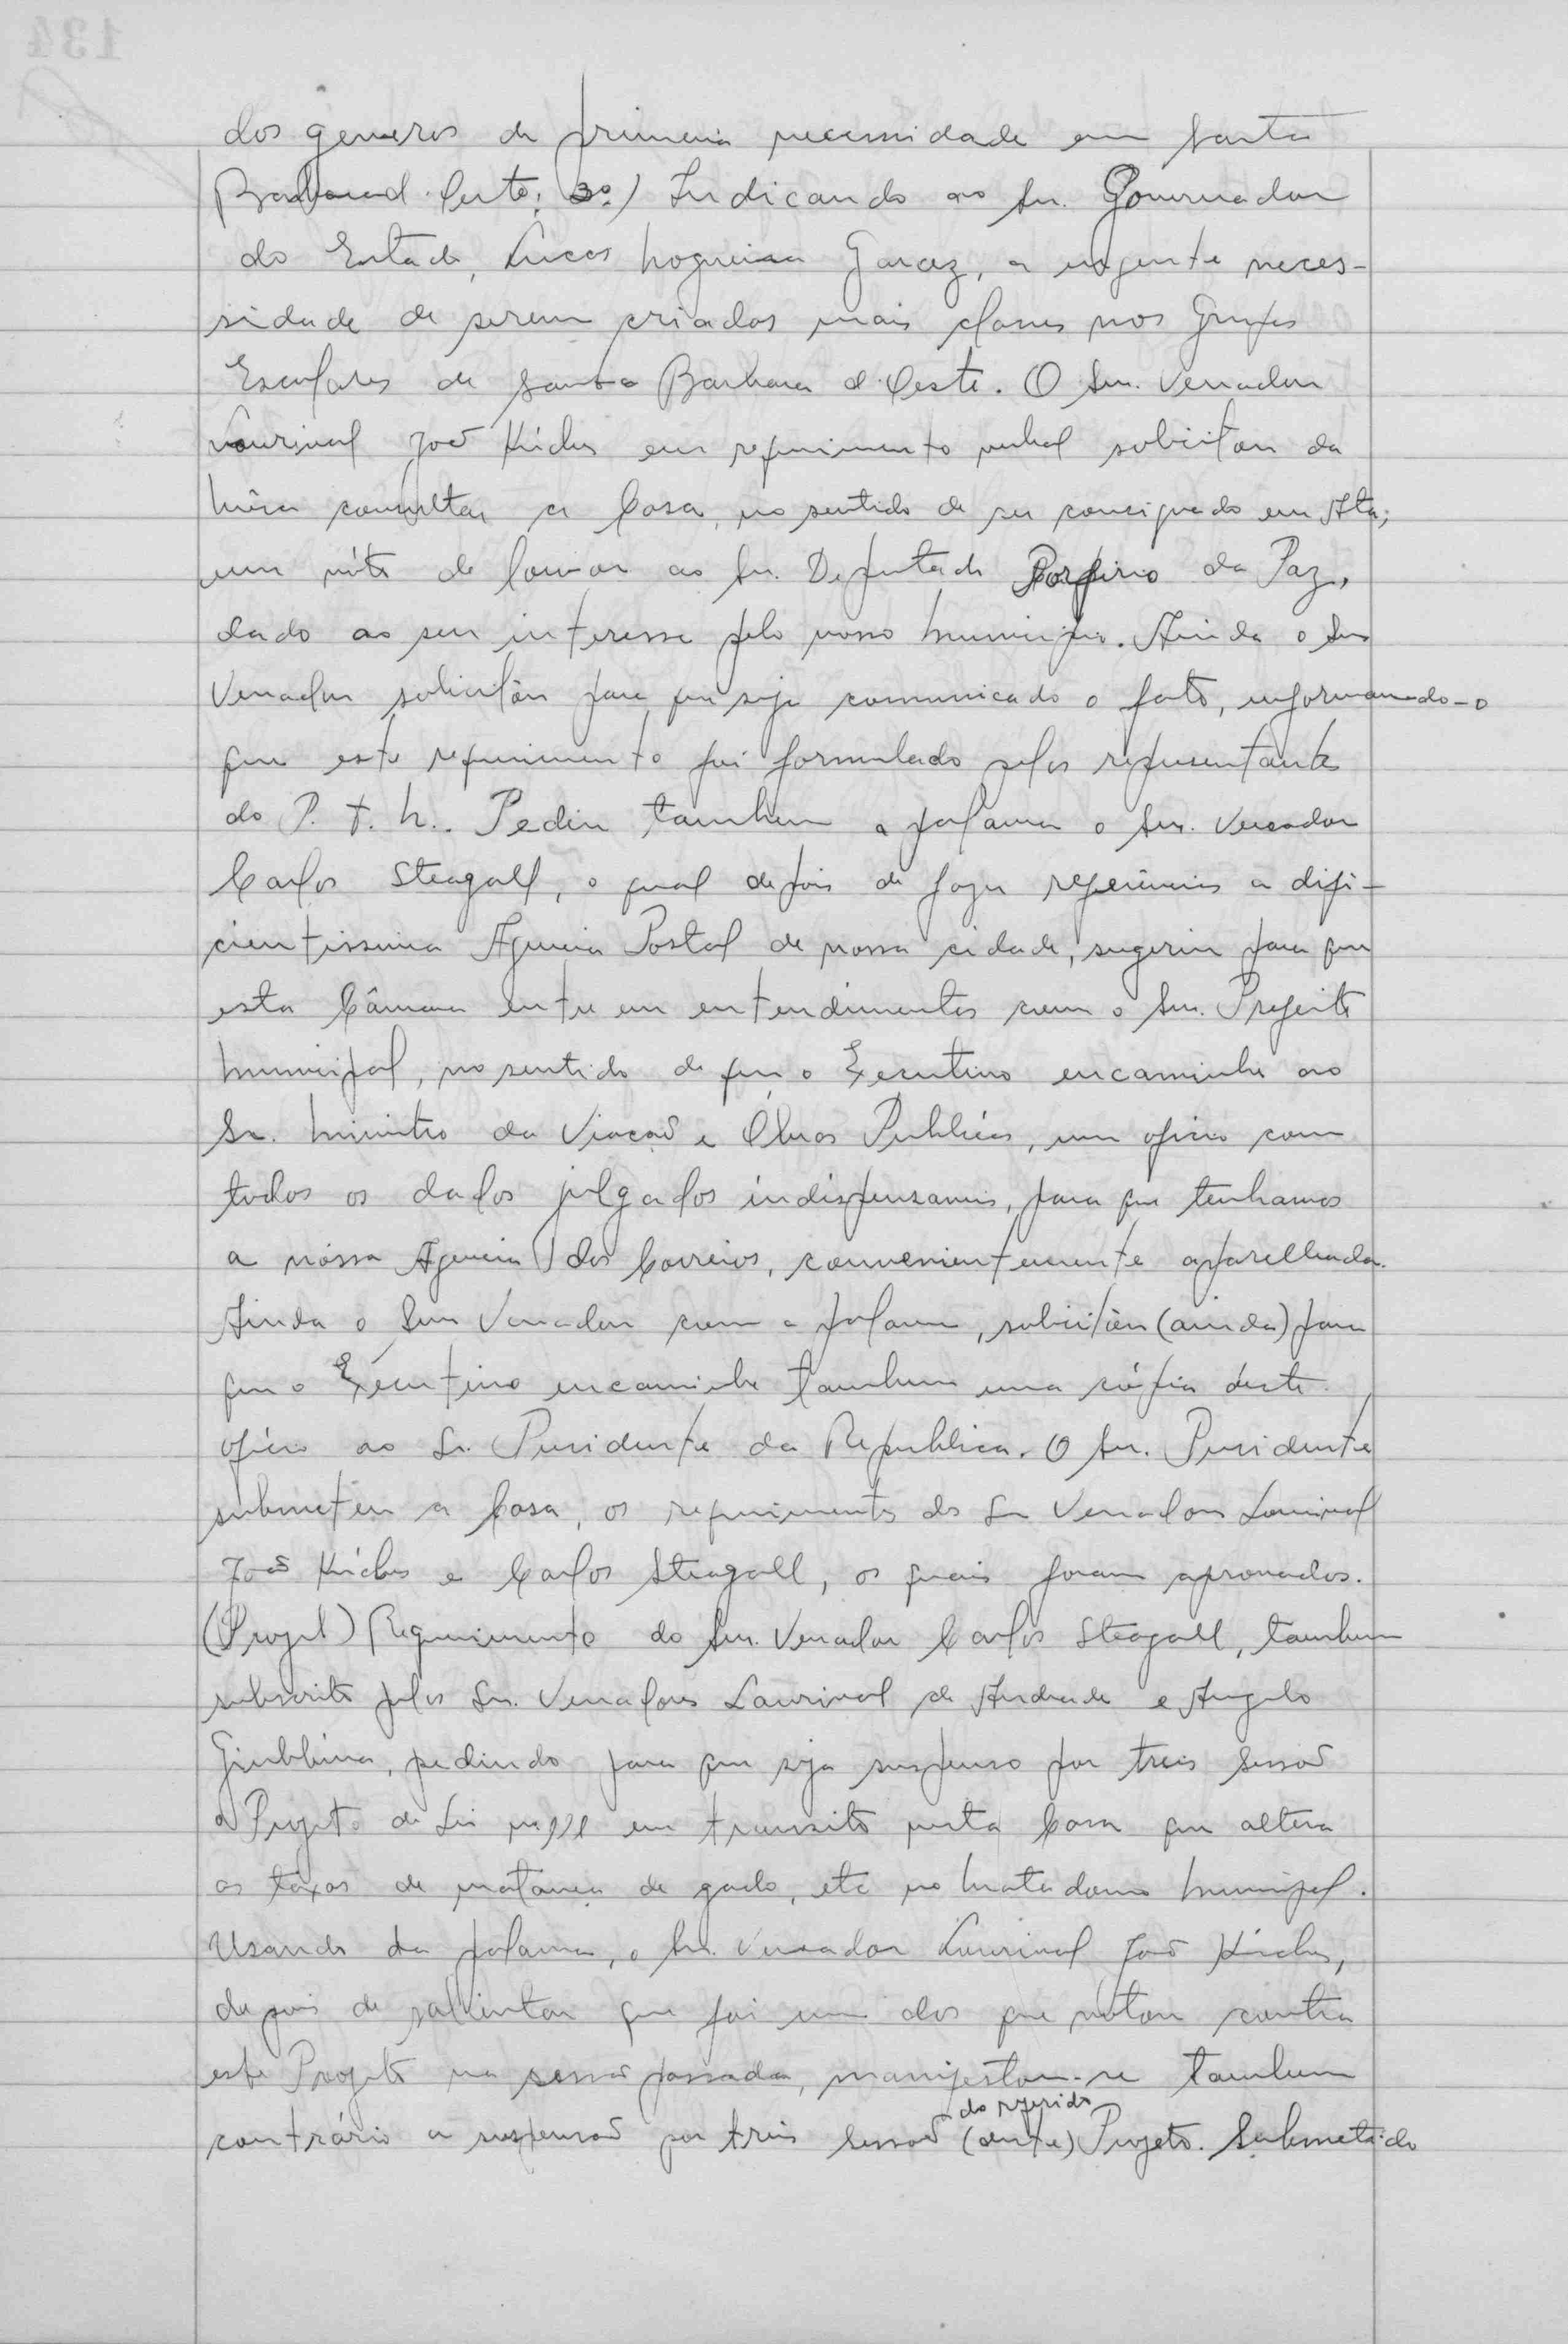 dos generos de primeira necessidade em Santa
Barbara d'Oeste; 3º) Indicando ao Snr. Governador
do Estado, Lucas Nogueira Garcez, a urgente neces-
sidade de serem criados mais classes nos Grupos
Escolares de Santa Barbara d'Oeste. O Snr. Vereador
Lourival João em requerimento verbal solicitou da
Mêsa consultar a Casa, no sentido de ser consignado em Ata;
um vóto de louvor ao Sr. Deputado Porfirio da Paz,
dado ao seu interesse pelo nosso Municipio. Ainda o Snr
Vereador solicitou para que seja comunicado o fato, informando-o
que este requerimento foi formulado pelos representantes
do P. T. N.. Pediu tambem a palavra o Snr. Vereador
Carlos Steagall, o qual depois de fazer referências a difi-
cientissima Agencia Postal de nossa cidade, sugeriu para que
esta Câmara entre em entendimentos com o Snr. Prefeito
Municipal, no sentido de que o Executivo encaminhe ao
Sr. Ministro da Viação e Obras Publicas, um oficio com
todos os dados julgados indispensaveis, para que tenhamos
a nóssa Agencia dos Correios, convenientemente aparelhada.
Ainda o Snr Vereador com a palavra, solicitou (ainda) para
que o Executivo encaminhe tambem uma cópia deste
oficio ao Sr. Presidente da Republica. O Snr. Presidente
submeteu a Casa, os requerimentos do Sr Vereador Lourival
João e Carlos Steagall, os quais foram aprovados.
(Projet) Requerimento do Snr. Vereador Carlos Steagall, tambem
subscrito pelos Srs. Vereadores Laurival de Andrade e Angelo
Giubbina, pedindo para que seja suspenso por tres sessoõ
o Projeto de Lei em transito nesta Casa que altera
as taxas de matança de gado, etc no Matadouro Municipal.
Usando da palavra, o Snr. Vereador Lourival João
depois de salientar que foi um dos que votou contra
este Projeto na sessão passada, manifestou-se tambem
do referido
contrário a suspensão por três sessoõ (deste) Projeto. Submetido